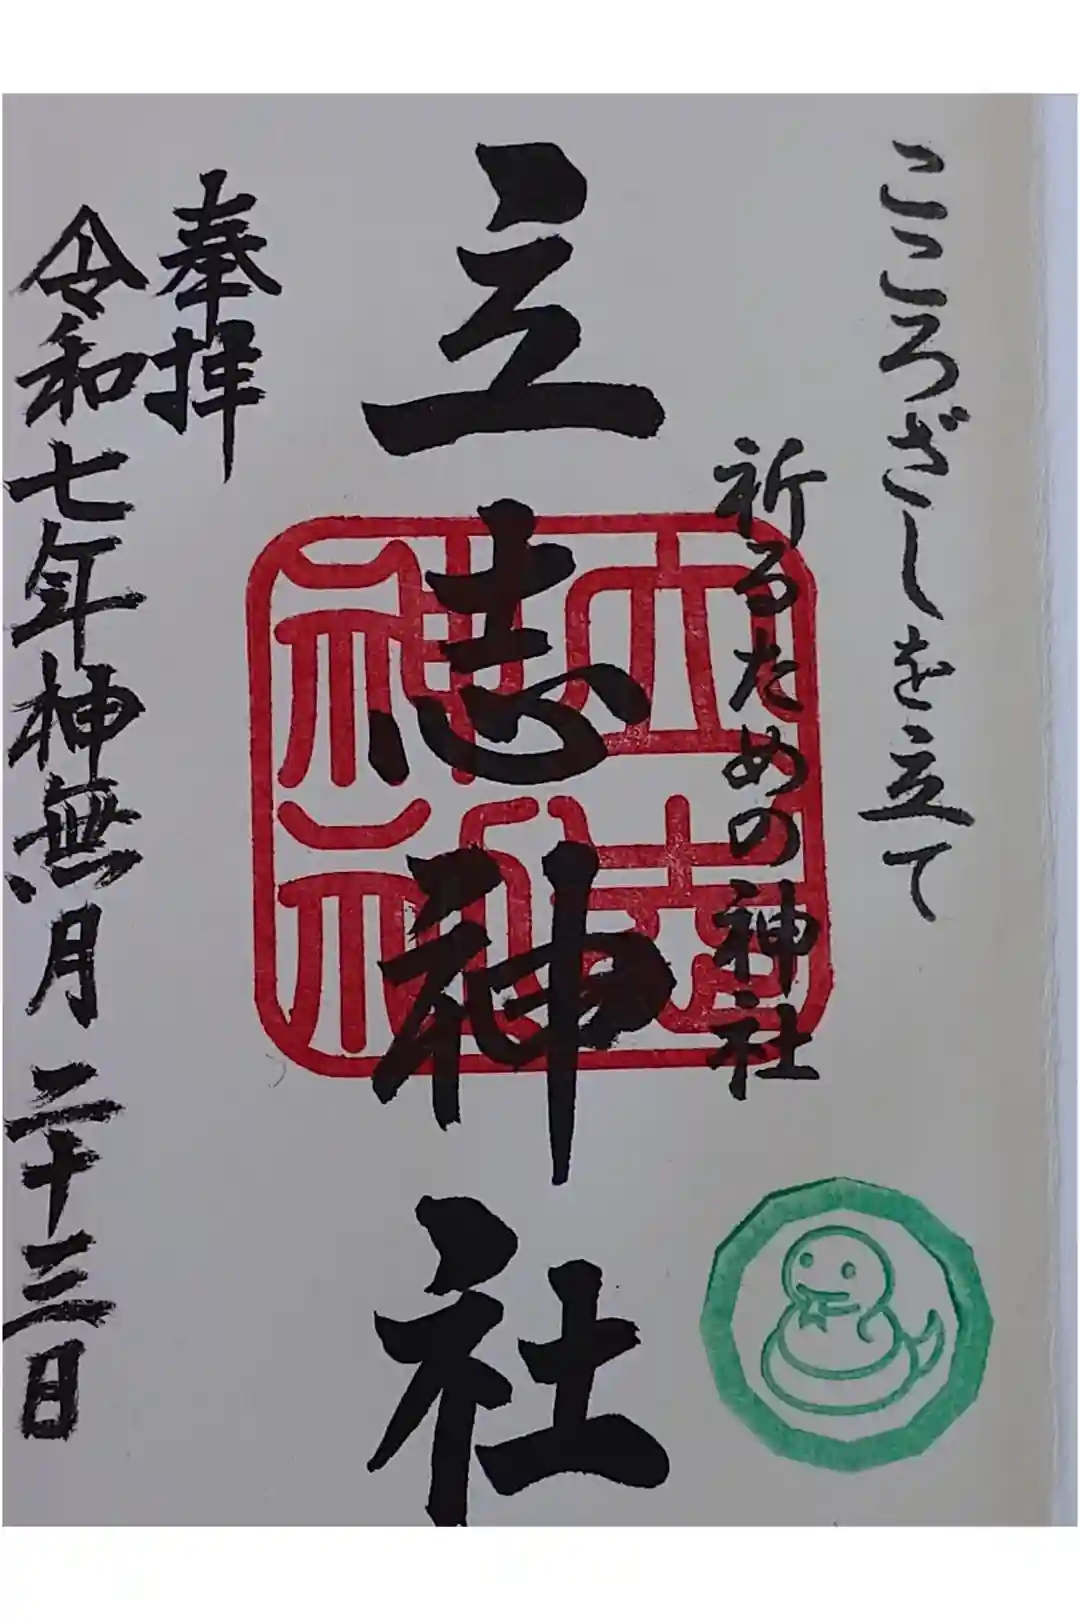 こころざしを立て
祈るための神社
立志神社
立志神社
奉拝
令和七年神無月二十三日